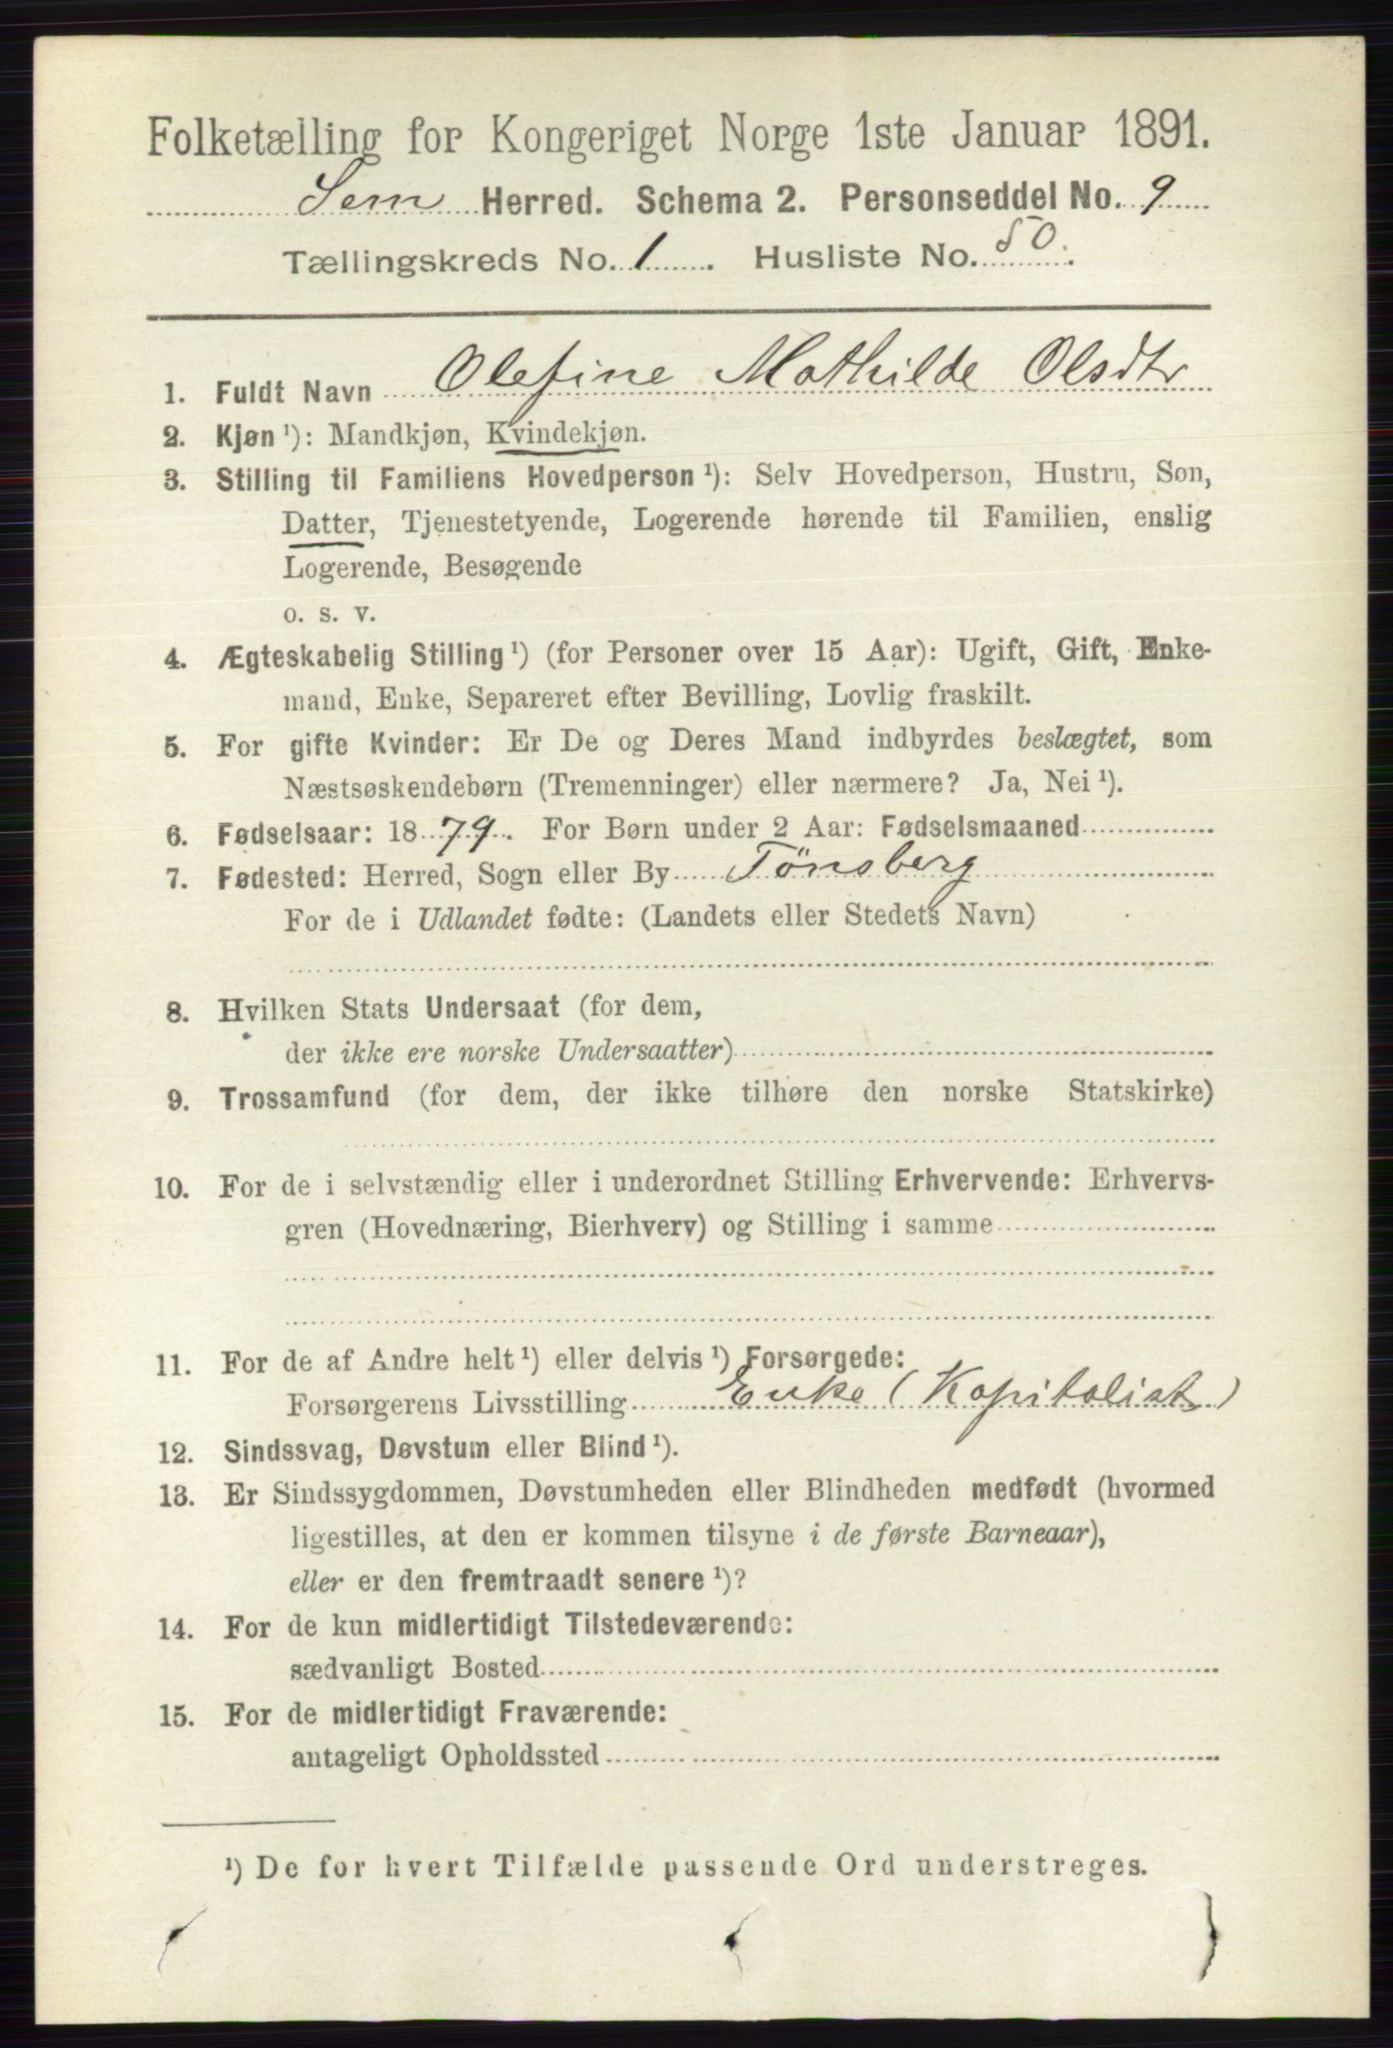 Folketælling for Kongeriget Norge 1ste Januar 1891.
Sem Herred. Schema 2. Personseddel No. 9
Tællingskreds No. 1. Husliste No. 50.
1. Fuldt Navn Olefine Mathilde Olsdtr
2. Kjøn ¹): Mandkjøn, Kvindekjøn.
3. Stilling til Familiens Hovedperson ¹): Selv Hovedperson, Hustru, Søn,
Datter, Tjenestetyende, Logerende hørende til Familien, enslig
Logerende, Besøgende
o. s. v.
4. Ægteskabelig Stilling ¹) (for Personer over 15 Aar): Ugift, Gift, Enke-
mand, Enke, Separeret efter Bevilling, Lovlig fraskilt.
5. For gifte Kvinder: Er De og Deres Mand indbyrdes beslægtet, som
Næstsøskendebørn (Tremenninger) eller nærmere? Ja, Nei ¹).
6. Fødselsaar: 1879. For Børn under 2 Aar: Fødselsmaaned
7. Fødested: Herred, Sogn eller By Tönsberg
For de i Udlandet fødte: (Landets eller Stedets Navn)
8. Hvilken Stats Undersaat (for dem,
der ikke ere norske Undersaatter)
9. Trossamfund (for dem, der ikke tilhøre den norske Statskirke)
10. For de i selvstændig eller i underordnet Stilling Erhvervende: Erhvervs-
gren (Hovednæring, Bierhverv) og Stilling i samme
11. For de af Andre helt ¹) eller delvis ¹) Forsørgede:
Forsørgerens Livsstilling Enke (Kapitalist)
12. Sindssvag, Døvstum eller Blind ¹).
13. Er Sindssygdommen, Døvstumheden eller Blindheden medfødt (hvormed
ligestilles, at den er kommen tilsyne i de første Barneaar),
eller er den fremtraadt senere ¹)?
14. For de kun midlertidigt Tilstedeværende:
sædvanligt Bosted
15. For de midlertidigt Fraværende:
antageligt Opholdssted
¹) De for hvert Tilfælde passende Ord understreges.